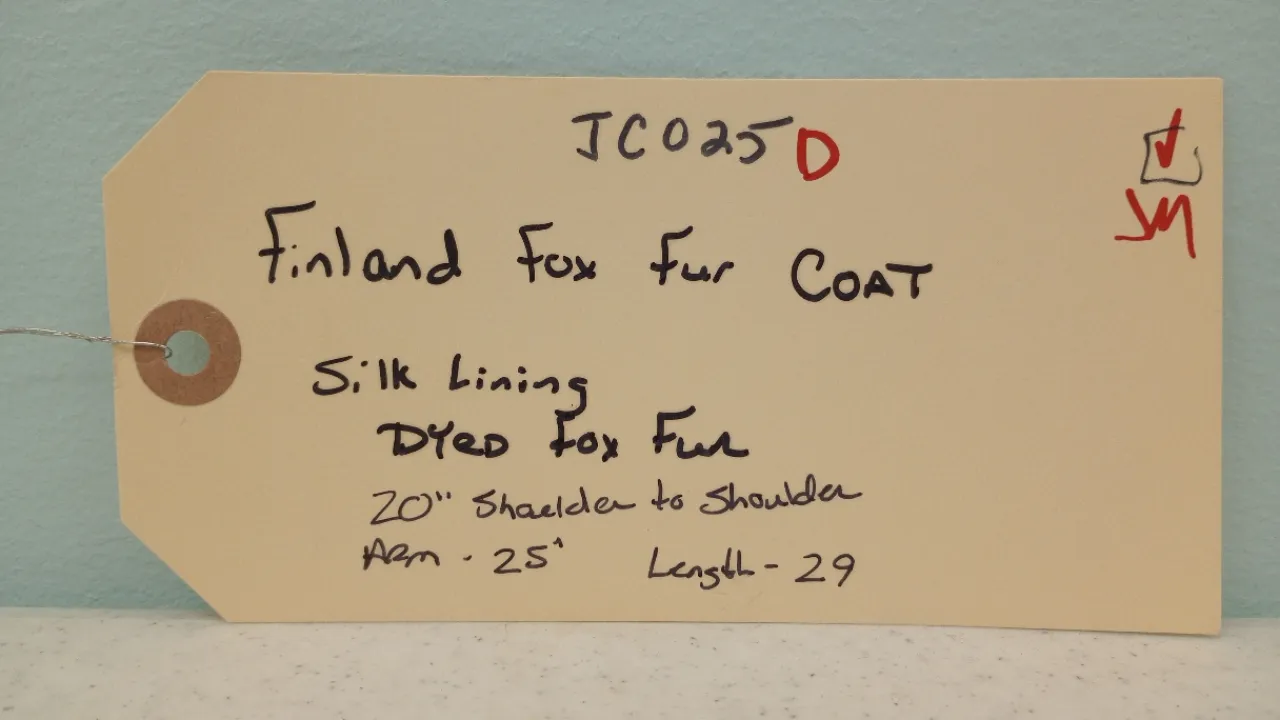 JC025D
JM
Finland Fox Fur COAT
Silk Lining
DYED Fox Fur
20" Shoulder to Shoulder
ARM - 25" Length - 29